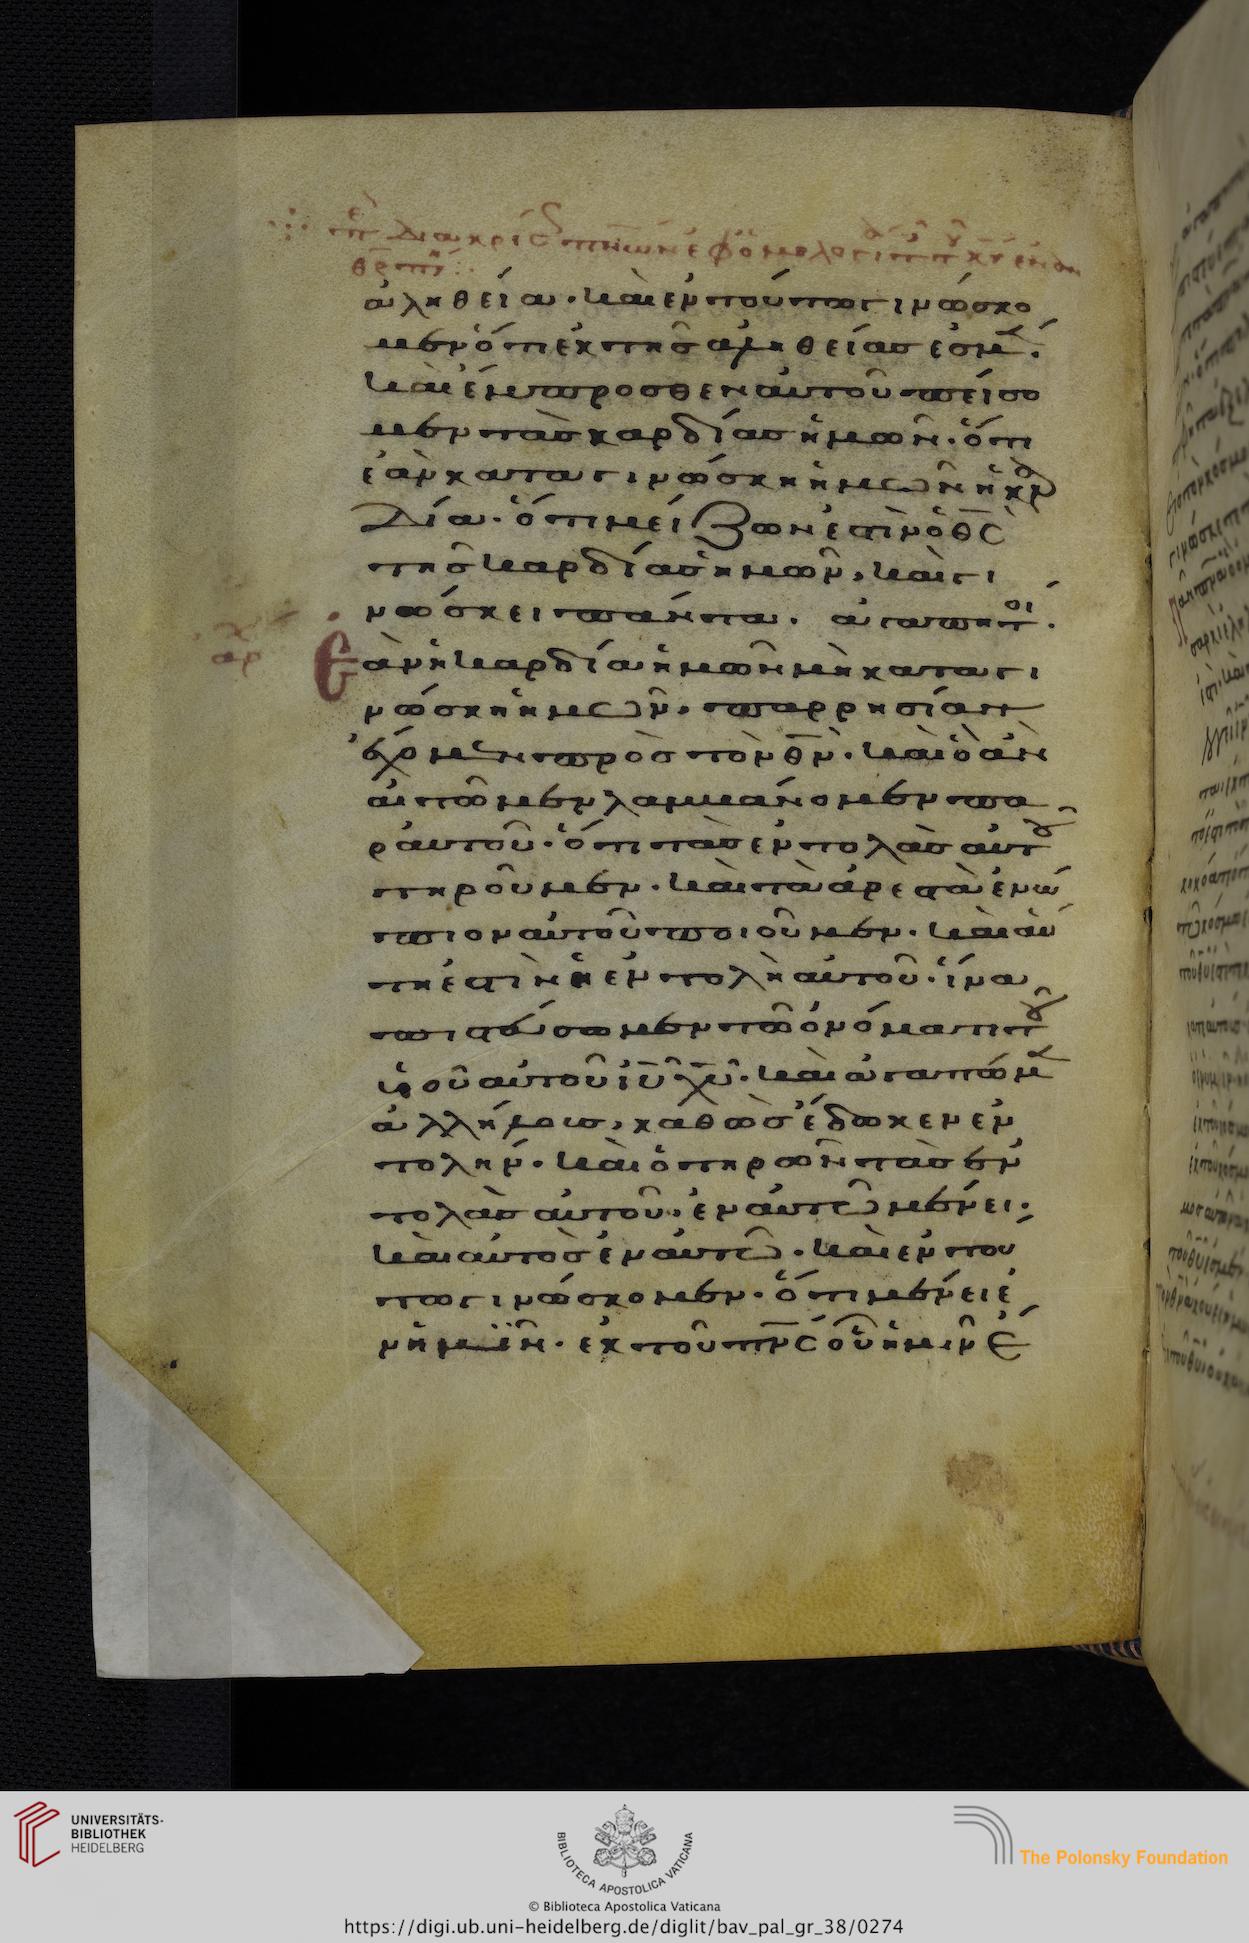 ἀληθεία. καὶ ἐν τούτω γινώσκο
μεν ὅτι ἐκ τῆς ἀληθείας ἐσμέ.
καὶ ἔμπροσθεν αὐτοῦ πείσο
μεν τὰς καρδίας ἡμῶν. ὅτι
ἐὰν καταγινώσκη ἡμῶν ἡ καρ
δία. ὅτι μείζων ἐστὶν ὁ θς
τῆς καρδίας ἡμῶν, καὶ γι
νώσκει πάντα. ἀγαπητοί.
Ἐὰν ἡ καρδία ἡμῶν μὴ καταγι
νώσκη ἡμῶν, παρρησίαν
ἔχομεν πρὸς τὸν θν. καὶ ὃ ἂν
αἰτῶμεν λαμβάνομεν πα
ρ αὐτοῦ. ὅτι τὰς ἐντολὰς αὐτοῦ
τηροῦμεν. καὶ τὰ ἀρεστὰ ἐνώ
πιον αὐτοῦ ποιοῦμεν. καὶ αὕ
τη ἐστὶν ἡ ἐντολὴ αὐτοῦ. ἵνα
πιστεύσωμεν τῶ ὀνόματι τοῦ
υἱοῦ αὐτοῦ ιυ χυ. καὶ ἀγαπῶμεν
ἀλλήλους, καθὼς ἔδωκεν ἐν
τολήν. καὶ ὁ τηρῶν τὰς ἐν
τολὰς αὐτοῦ. ἐν αὐτῶ μένει.
καὶ αὐτὸς ἐν αὐτῶ. καὶ ἐν τού
τω γινώσκομεν. ὅτι μένει ἐ
ν ἡμῖν. ἐκ τοῦ πνς οὗ ἡμῖν ἔ
UNIVERSITÄTS-
BIBLIOTHEK
HEIDELBERG
BIBLIOTECA APOSTOLICA VATICANA
The Polonsky Foundation
© Biblioteca Apostolica Vaticana
https://digi.ub.uni-heidelberg.de/diglit/bav_pal_gr_38/0274